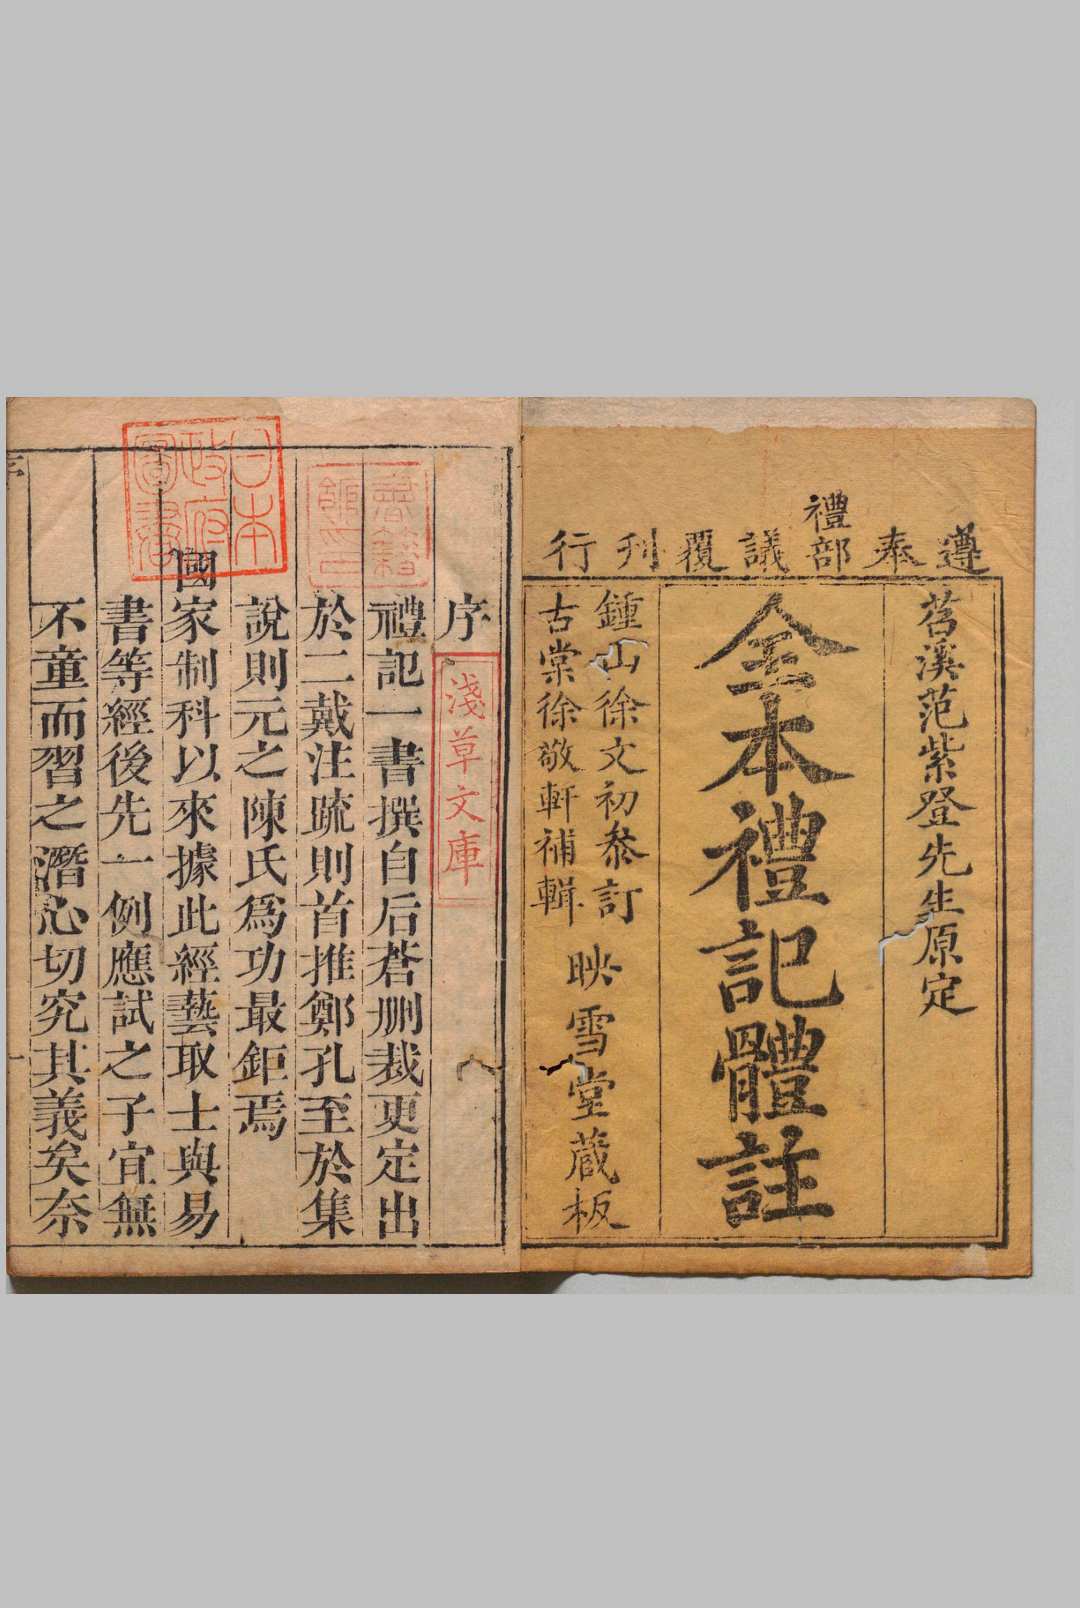 遵奉禮部議覆刊行
苕溪范紫登先生原定
全本禮記體註
鍾山徐文初參訂
古棠徐敬軒補輯
映雪堂藏板
序
淺草文庫
禮記一書撰自后蒼刪裁更定出
於二戴注疏則首推鄭孔至於集
說則元之陳氏爲功最鉅焉
國家制科以來據此經藝取士與易
書等經後先一例應試之子宜無
不童而習之潛心切究其義矣奈
日本
政府
圖書